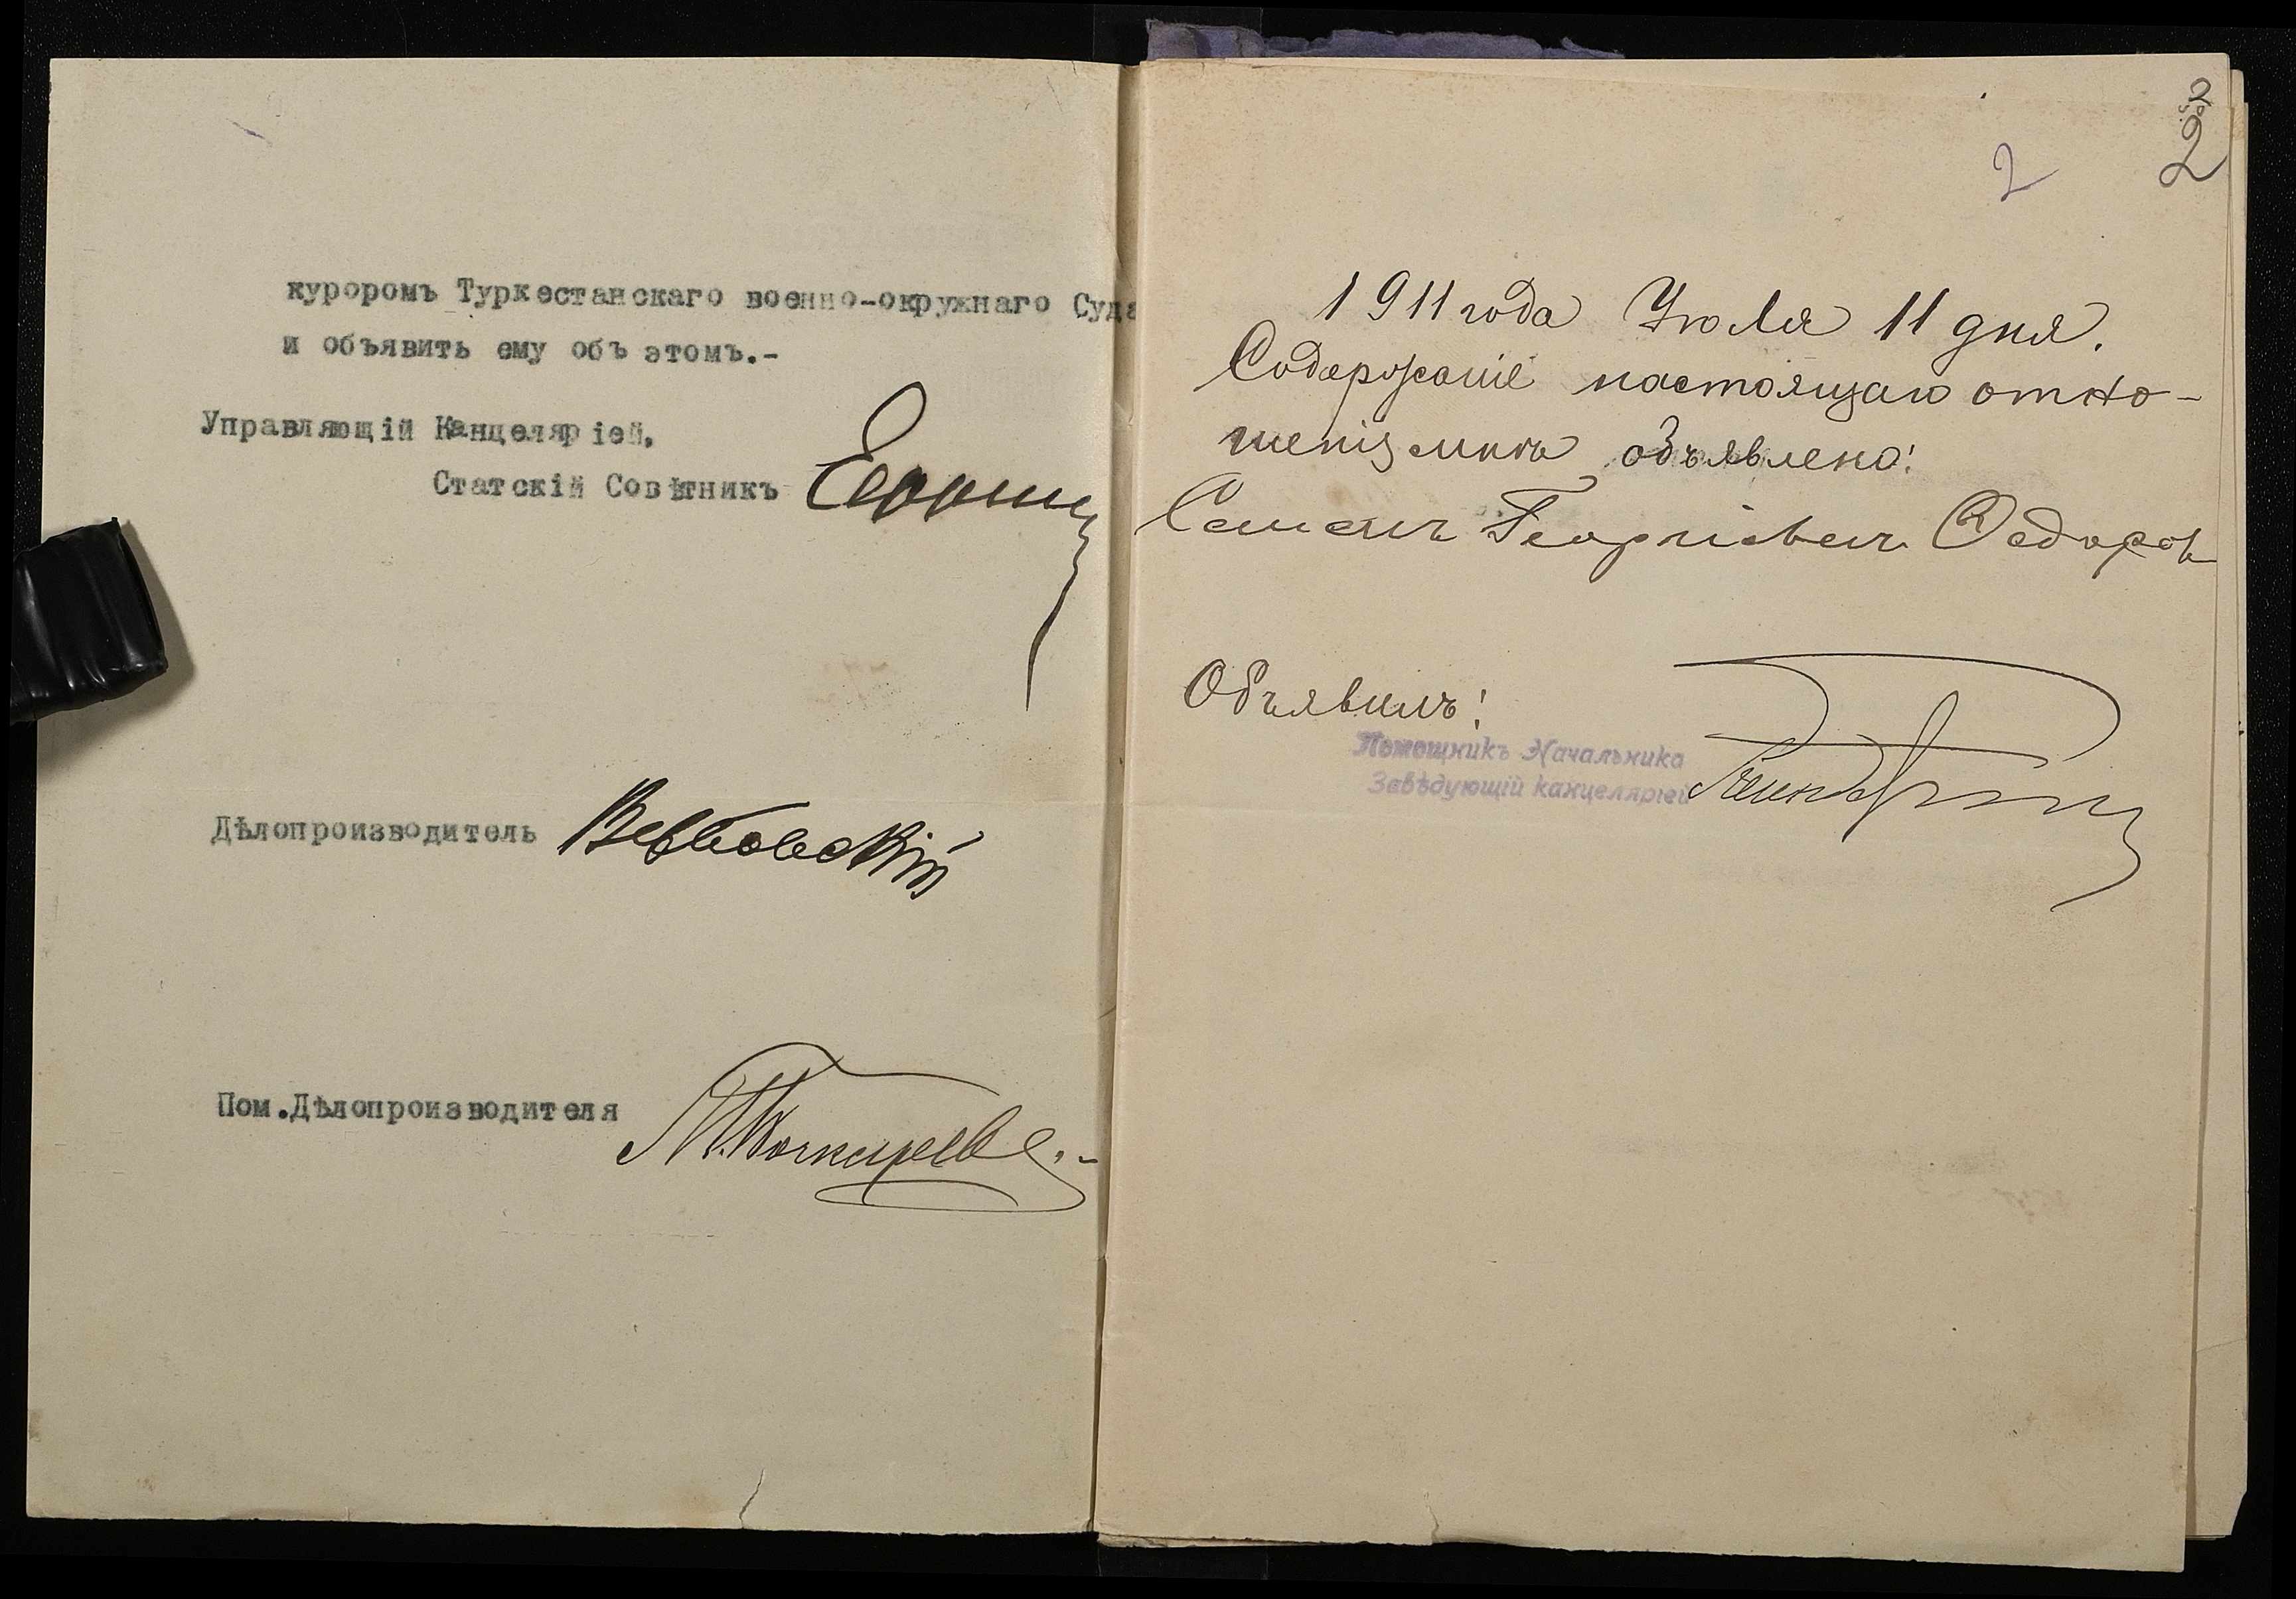 куроромъ Туркестанскаго военно-окружнаго Суда
и объявить ему объ этомъ.-
Управляющій Канцеляріей,
Статскій Совѣтникъ
Дѣлопроизводитель
Пом.Дѣлопроизводителя
2
2
1911 года Июля 11 дня.
Содержаніе настоящаго отно-
шенія мнѣ объявлено:
Семенъ Георгіевичъ Федоровъ
Объявилъ!
Помощникъ Начальника
Завѣдующій канцеляріей